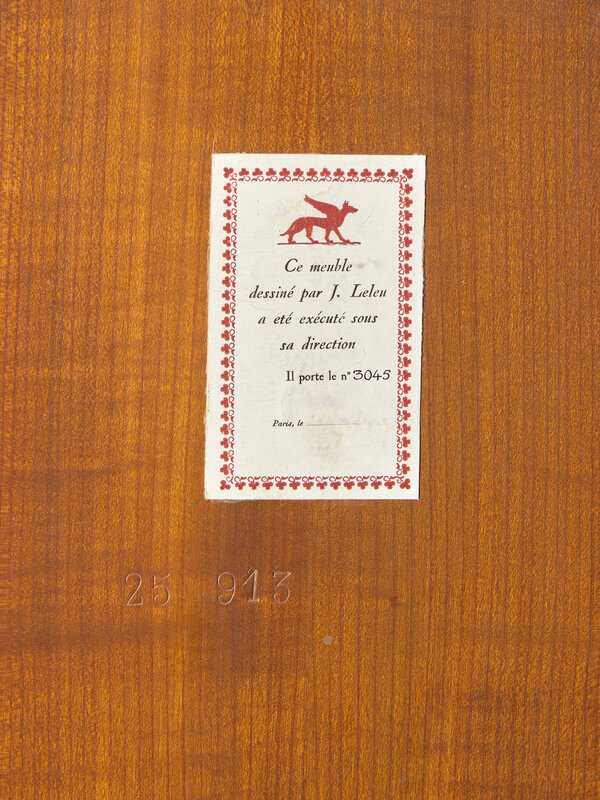 Ce meuble
dessiné par J. Leleu
a eté exécuté sous
sa direction
Il porte le n° 3045
Paris, le
25 913